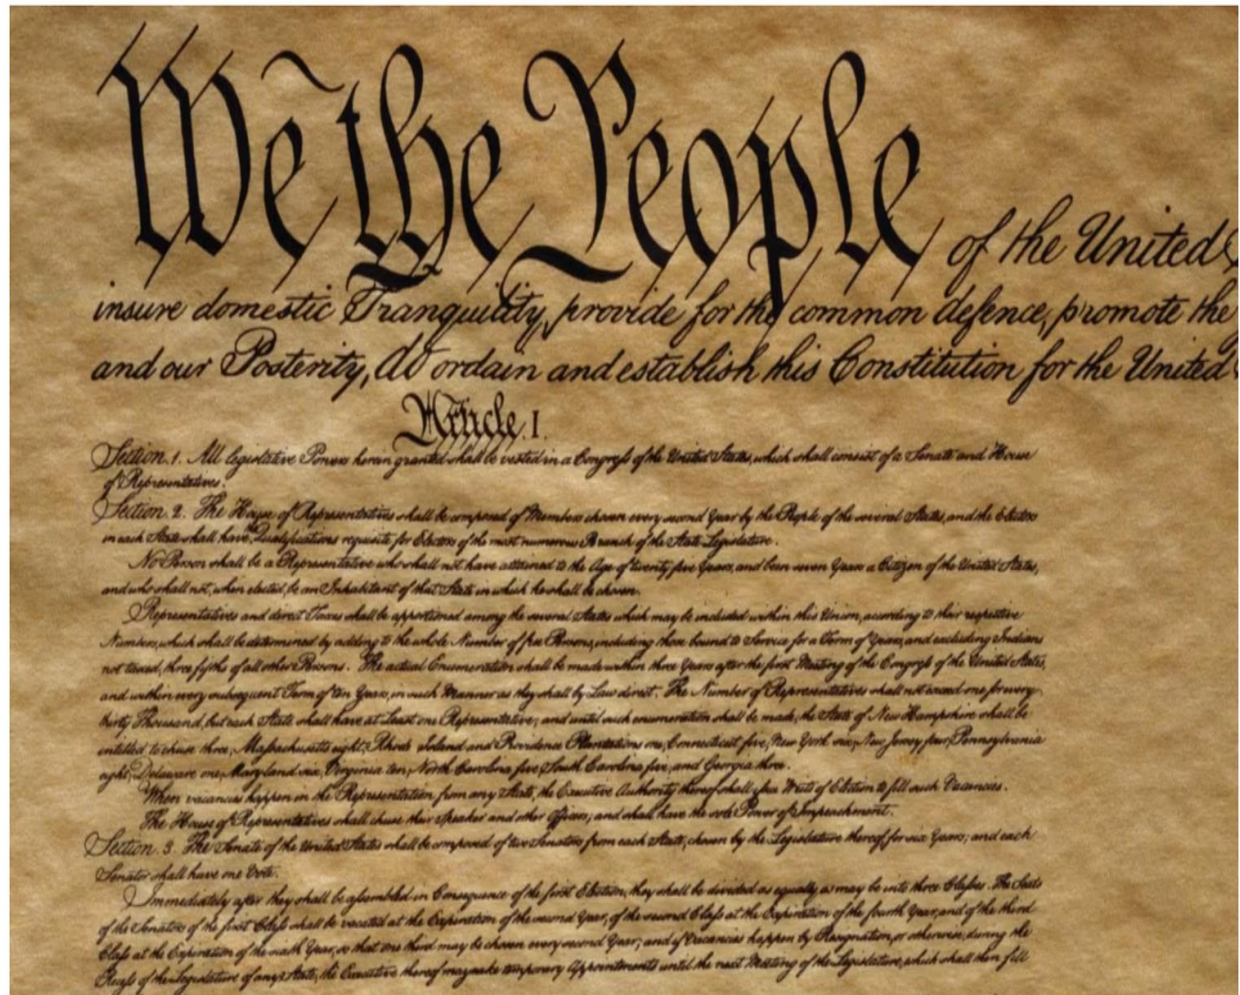 We the People of the United
insure domestic Tranquility, provide for the common defence, promote the
and our Posterity, do ordain and establish this Constitution for the United
Article. I.
Section. 1. All legislative Powers herein granted shall be vested in a Congress of the United States, which shall consist of a Senate and House
of Representatives.
Section. 2. The House of Representatives shall be composed of Members chosen every second Year by the People of the several States, and the Electors
in each State shall have the Qualifications requisite for Electors of the most numerous Branch of the State Legislature.
No Person shall be a Representative who shall not have attained to the Age of twenty five Years, and been seven Years a Citizen of the United States,
and who shall not, when elected, be an Inhabitant of that State in which he shall be chosen.
Representatives and direct Taxes shall be apportioned among the several States which may be included within this Union, according to their respective
Numbers, which shall be determined by adding to the whole Number of free Persons, including those bound to Service for a Term of Years, and excluding Indians
not taxed, three fifths of all other Persons. The actual Enumeration shall be made within three Years after the first Meeting of the Congress of the United States,
and within every subsequent Term of ten Years, in such Manner as they shall by Law direct. The Number of Representatives shall not exceed one for every
thirty Thousand, but each State shall have at Least one Representative; and until such enumeration shall be made, the State of New Hampshire shall be
entitled to chuse three, Massachusetts eight, Rhode Island and Providence Plantations one, Connecticut five, New York six, New Jersey four, Pennsylvania
eight, Delaware one, Maryland six, Virginia ten, North Carolina five, South Carolina five, and Georgia three.
When vacancies happen in the Representation from any State, the Executive Authority thereof shall issue Writs of Election to fill such Vacancies.
The House of Representatives shall chuse their Speaker and other Officers; and shall have the sole Power of Impeachment.
Section. 3. The Senate of the United States shall be composed of two Senators from each State, chosen by the Legislature thereof for six Years; and each
Senator shall have one Vote.
Immediately after they shall be assembled in Consequence of the first Election, they shall be divided as equally as may be into three Classes. The Seats
of the Senators of the first Class shall be vacated at the Expiration of the second Year, of the second Class at the Expiration of the fourth Year, and of the third
Class at the Expiration of the sixth Year, so that one third may be chosen every second Year; and if Vacancies happen by Resignation, or otherwise, during the
Recess of the Legislature of any State, the Executive thereof may make temporary Appointments until the next Meeting of the Legislature, which shall then fill